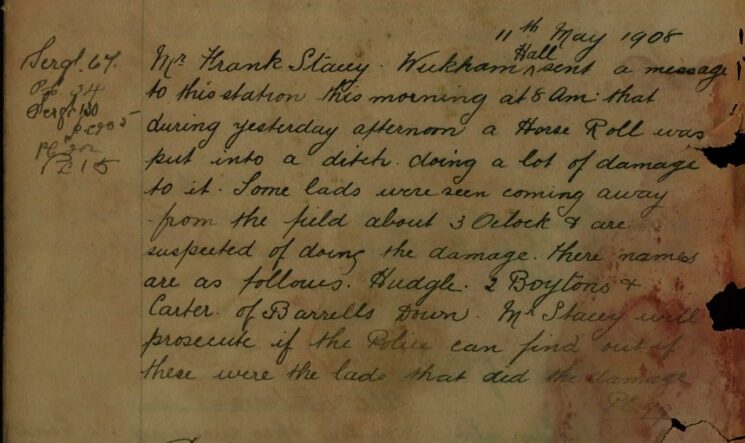 11th May 1908
Sergt. 67.
P.C. 34
Sergt 130
P.C. 202
P.C. 15
Mr Frank Stacey. Wickham Hall sent a message
to this station this morning at 8 Am: that
during yesterday afternoon a Horse Roll was
put into a ditch. doing a lot of damage
to it. Some lads were seen coming away
from the field about 3 Oclock & are
suspected of doing the damage. there names
are as follows. Hudgle. 2 Boytons &
Carter. of Barrells Down. Mr Stacey will
prosecute if the Police can find out if
these were the lads that did the damage